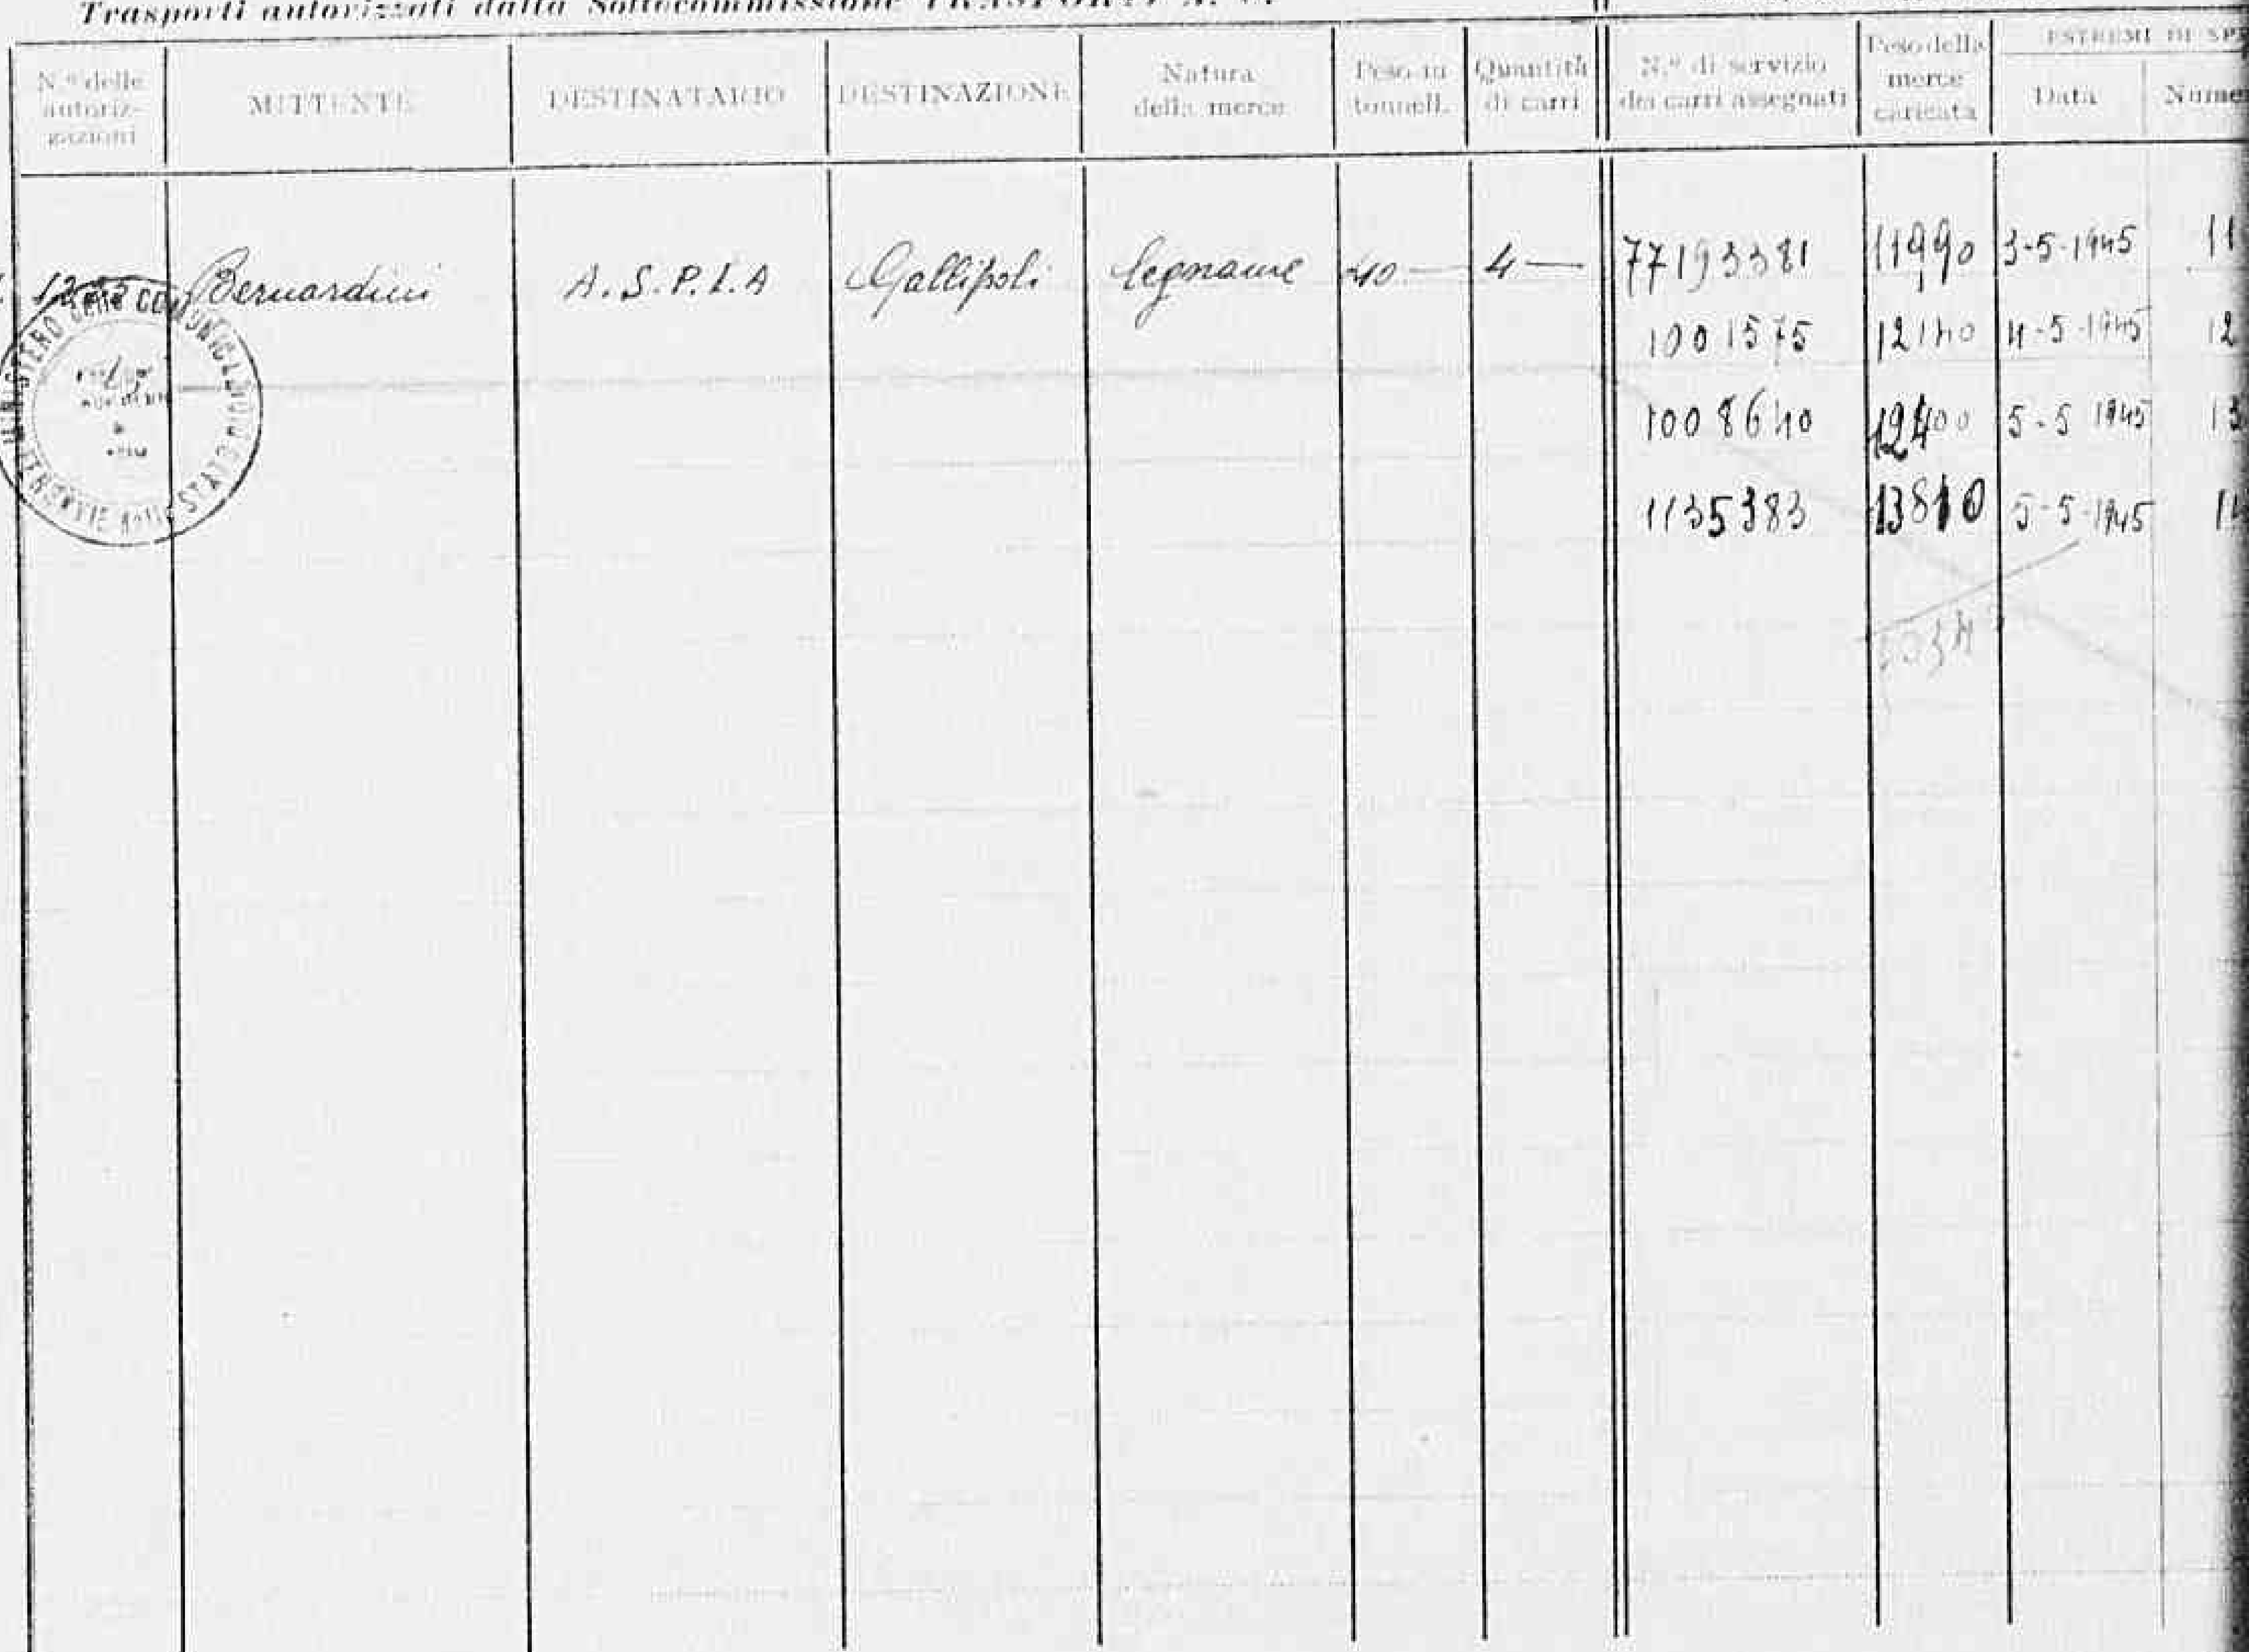 Trasporti autorizzati dalla Sottocommissione TRASPORTI
N.º delle autorizzazioni MITTENTE DESTINATARIO DESTINAZIONE Natura della merce Peso in tonnell. Quantità di carri N.º di servizio dei carri assegnati Peso della merce caricata ESTREMI DI Data
Bernardini A.S.P.I.A Gallipoli legname 40 — 4 — 77193381 11990 3-5-1945 11
1001575 12140 4-5-1945 12
1008640 12400 5-5 1945 13
1135383 13810 5-5-1945 14
MINISTERO delle COMUNICAZIONI
FERROVIE dello STATO